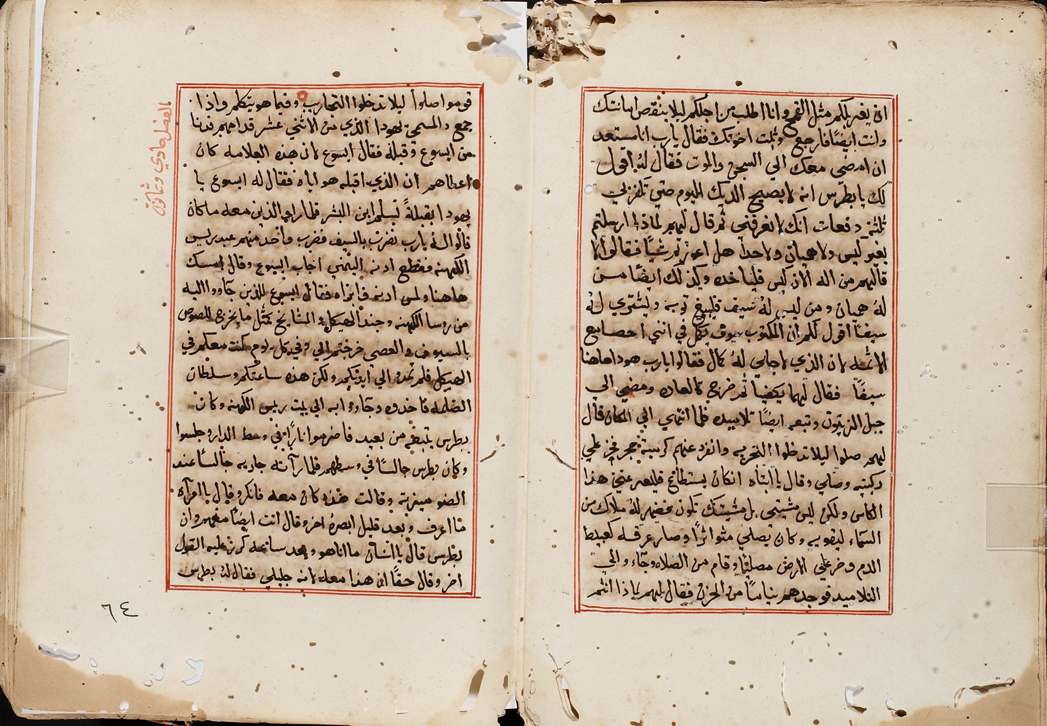 ان يغربلكم مثل القمح وانا اطلب من اجلكم ليلا ينقص امانتك
وانت ايضًا فارجع وثبت اخوتك فقال يارب انا مستعد
ان امضي معك الي السجن والموت فقال له اقول
لك يا بطرس انه لا يصيح الديك اليوم حتي تنكرني
ثلثة دفعات انك لا تعرفني ثم قال لهم لماذا ارسلتكم
بغير كيس ولا هميان ولا حدا هل اعوزتم شيًا فقالوا لا
قال لهم من اله الان كيس فلياخده وكذلك ايضًا من
له هميان ومن ليس له سيف فليبيع ثوبه ويشتري له
سيفًا اقول لكم ان المكتوب سوف يكمل في انني احصا مع
الاثمه لان الذي لاجلي له كمال فقالوا يارب هوداهاهنا
سيفًا فقال لهما يكفيا ثم خرج كالعاده ومضي الي
جبل الزيتون وتبعه ايضًا تلاميده فلما انتهي الي المكان قال
لهم صلوا ليلا تدخلوا التجربه وانفرد عنهم كرمية حجر فخر علي
ركبتيه وصلي وقال يا ابتاه ان كان يستطاع فليعبر عني هذا
الكاس ولكن ليس مشيتي بل مشيتك تكون فظهر له ملاك من
السماء ليقويه وكان يصلي متواترًا وصار عرقه كعبيط
الدم وخر علي الارض مصليًا وقام من الصلاه وجاء والي
التلاميد فوجدهم نيامًا من الحزن فقال لهم ياذا انتم
قوموا صلوا ليلا تدخلوا التجارب وفيما هو يتكلم واذا
جمع والمسمي يهودا الذي من الاثني عشر قدامهم فدنا
من ايسوع وقبله فقال ايسوع لان هذه العلامه كان
اعطاهم ان الذي اقبله هو اياه فقال له ايسوع يا
يهودا ابقبلةً تسلم ابن البشر فلما راوا الذين معه ما كان
قالوا له يارب نضرب بالسيف فضرب واحد منهم عبد ريس
الكهنه فقطع ادنه اليمني اجاب ايسوع وقال امسك
هاهنا ولمس ادنه فابراه وفقال ايسوع للذين جاووا اليه
من روسا الكهنه وجند الهيكل والمشايخ كمثل ما يخرج للصوص
بالسيوف والعصي خرجتم الي وفي كل يوم كنت معكم في
الهيكل فلم تمدوا الي ايديكم ولكن هذه ساعتكم وسلطان
الظلمه فاخدوه وجاوو ابه الي بيت ريس الكهنه وكان
بطرس يتبعه من بعيد فاضرموا نارًا في وسط الدار وجلسوا
وكان بطرس جالسًا في وسطهم فلما راته جاريه جالسًا عند
الضو ميزته وقالت هذا كان معه فانكر وقال يا امراه
ما اعرفه وبعد قليل ابصره اخر وقال انت ايضًا منهم وان
بطرس قال يا انسان ما انا هو وبعد ساعه كرر عليه القول
اخر وقال حقًا ان هذا معه لانه جليلي فقال له بطرس
الفصل حادي وثمانون
٦٤